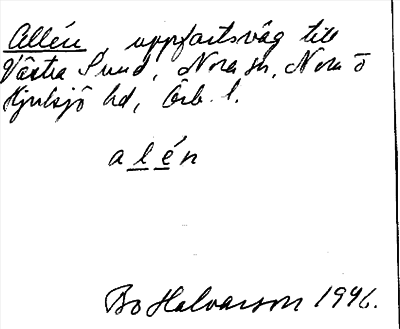 Allén, uppfartsväg till
Västra Sund, Nora sn, Nora o
Hjulsjö hd, Örb. l.
alén
Bo Halvarson 1946.